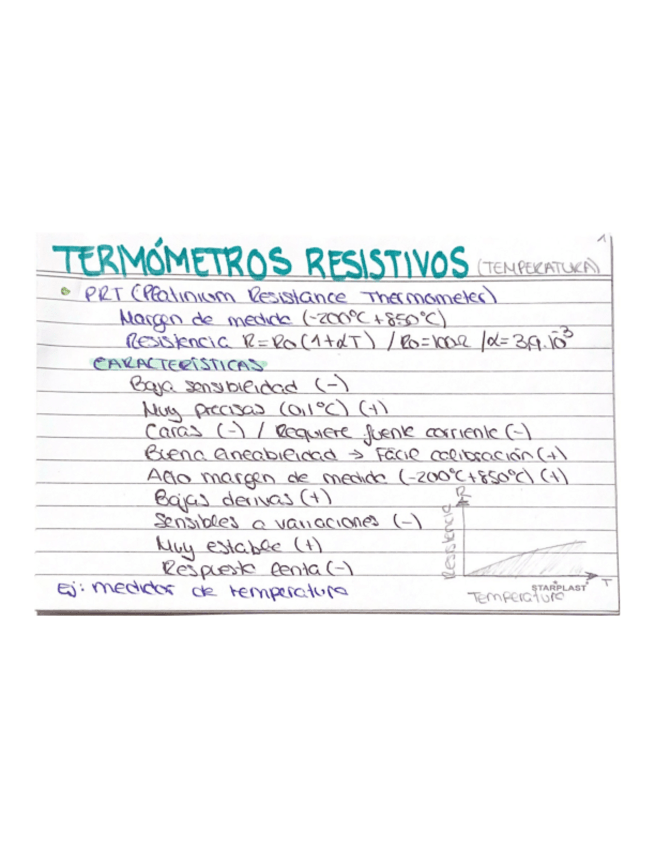 1
TERMÓMETROS RESISTIVOS (TEMPERATURA)
• PRT (Platinium Resistance Thermometer)
Margen de medida (-200°C +850°C)
Resistencia R=Ro(1+αT) / Ro=100Ω /α=3,9.10⁻³
CARACTERÍSTICAS
Baja sensibilidad (-)
Muy precisas (0,1°C) (+)
Caras (-) / Requiere fuente corriente (-)
Buena linealidad → Fácil calibración (+)
Alto margen de medida (-200°C+850°C) (+)
Bajas derivas (+)
Sensibles a variaciones (-)
Muy estable (+)
Respuesta lenta (-)
Ej: medidor de temperatura
R
Resistencia
T
STARPLAST
Temperatura